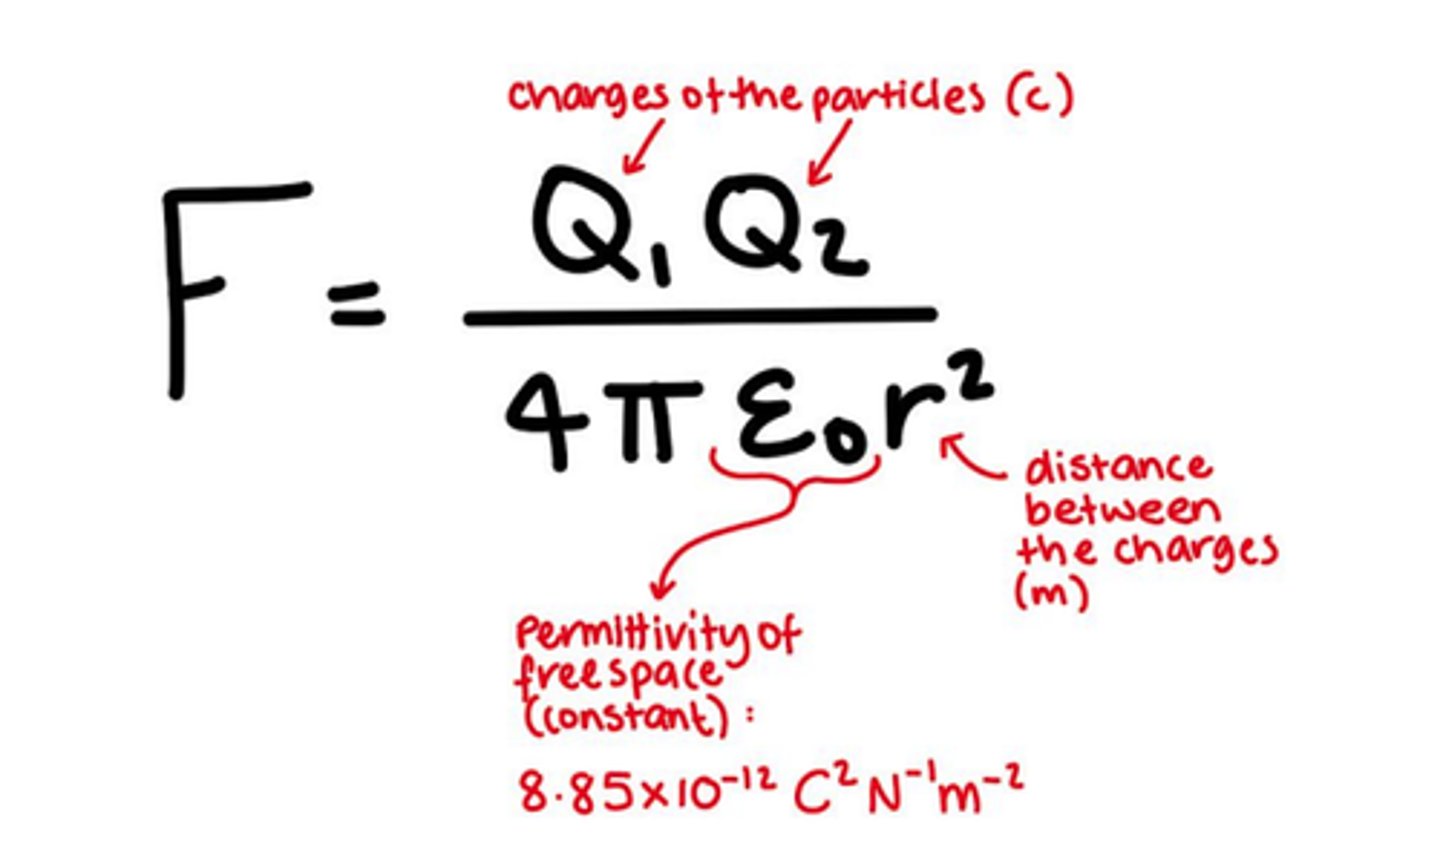 charges of the particles (c)
F = Q₁ Q₂
4π ε₀ r²
distance
between
the charges
(m)
Permittivity of
free space
(constant) :
8.85×10⁻¹² C² N⁻¹m⁻²